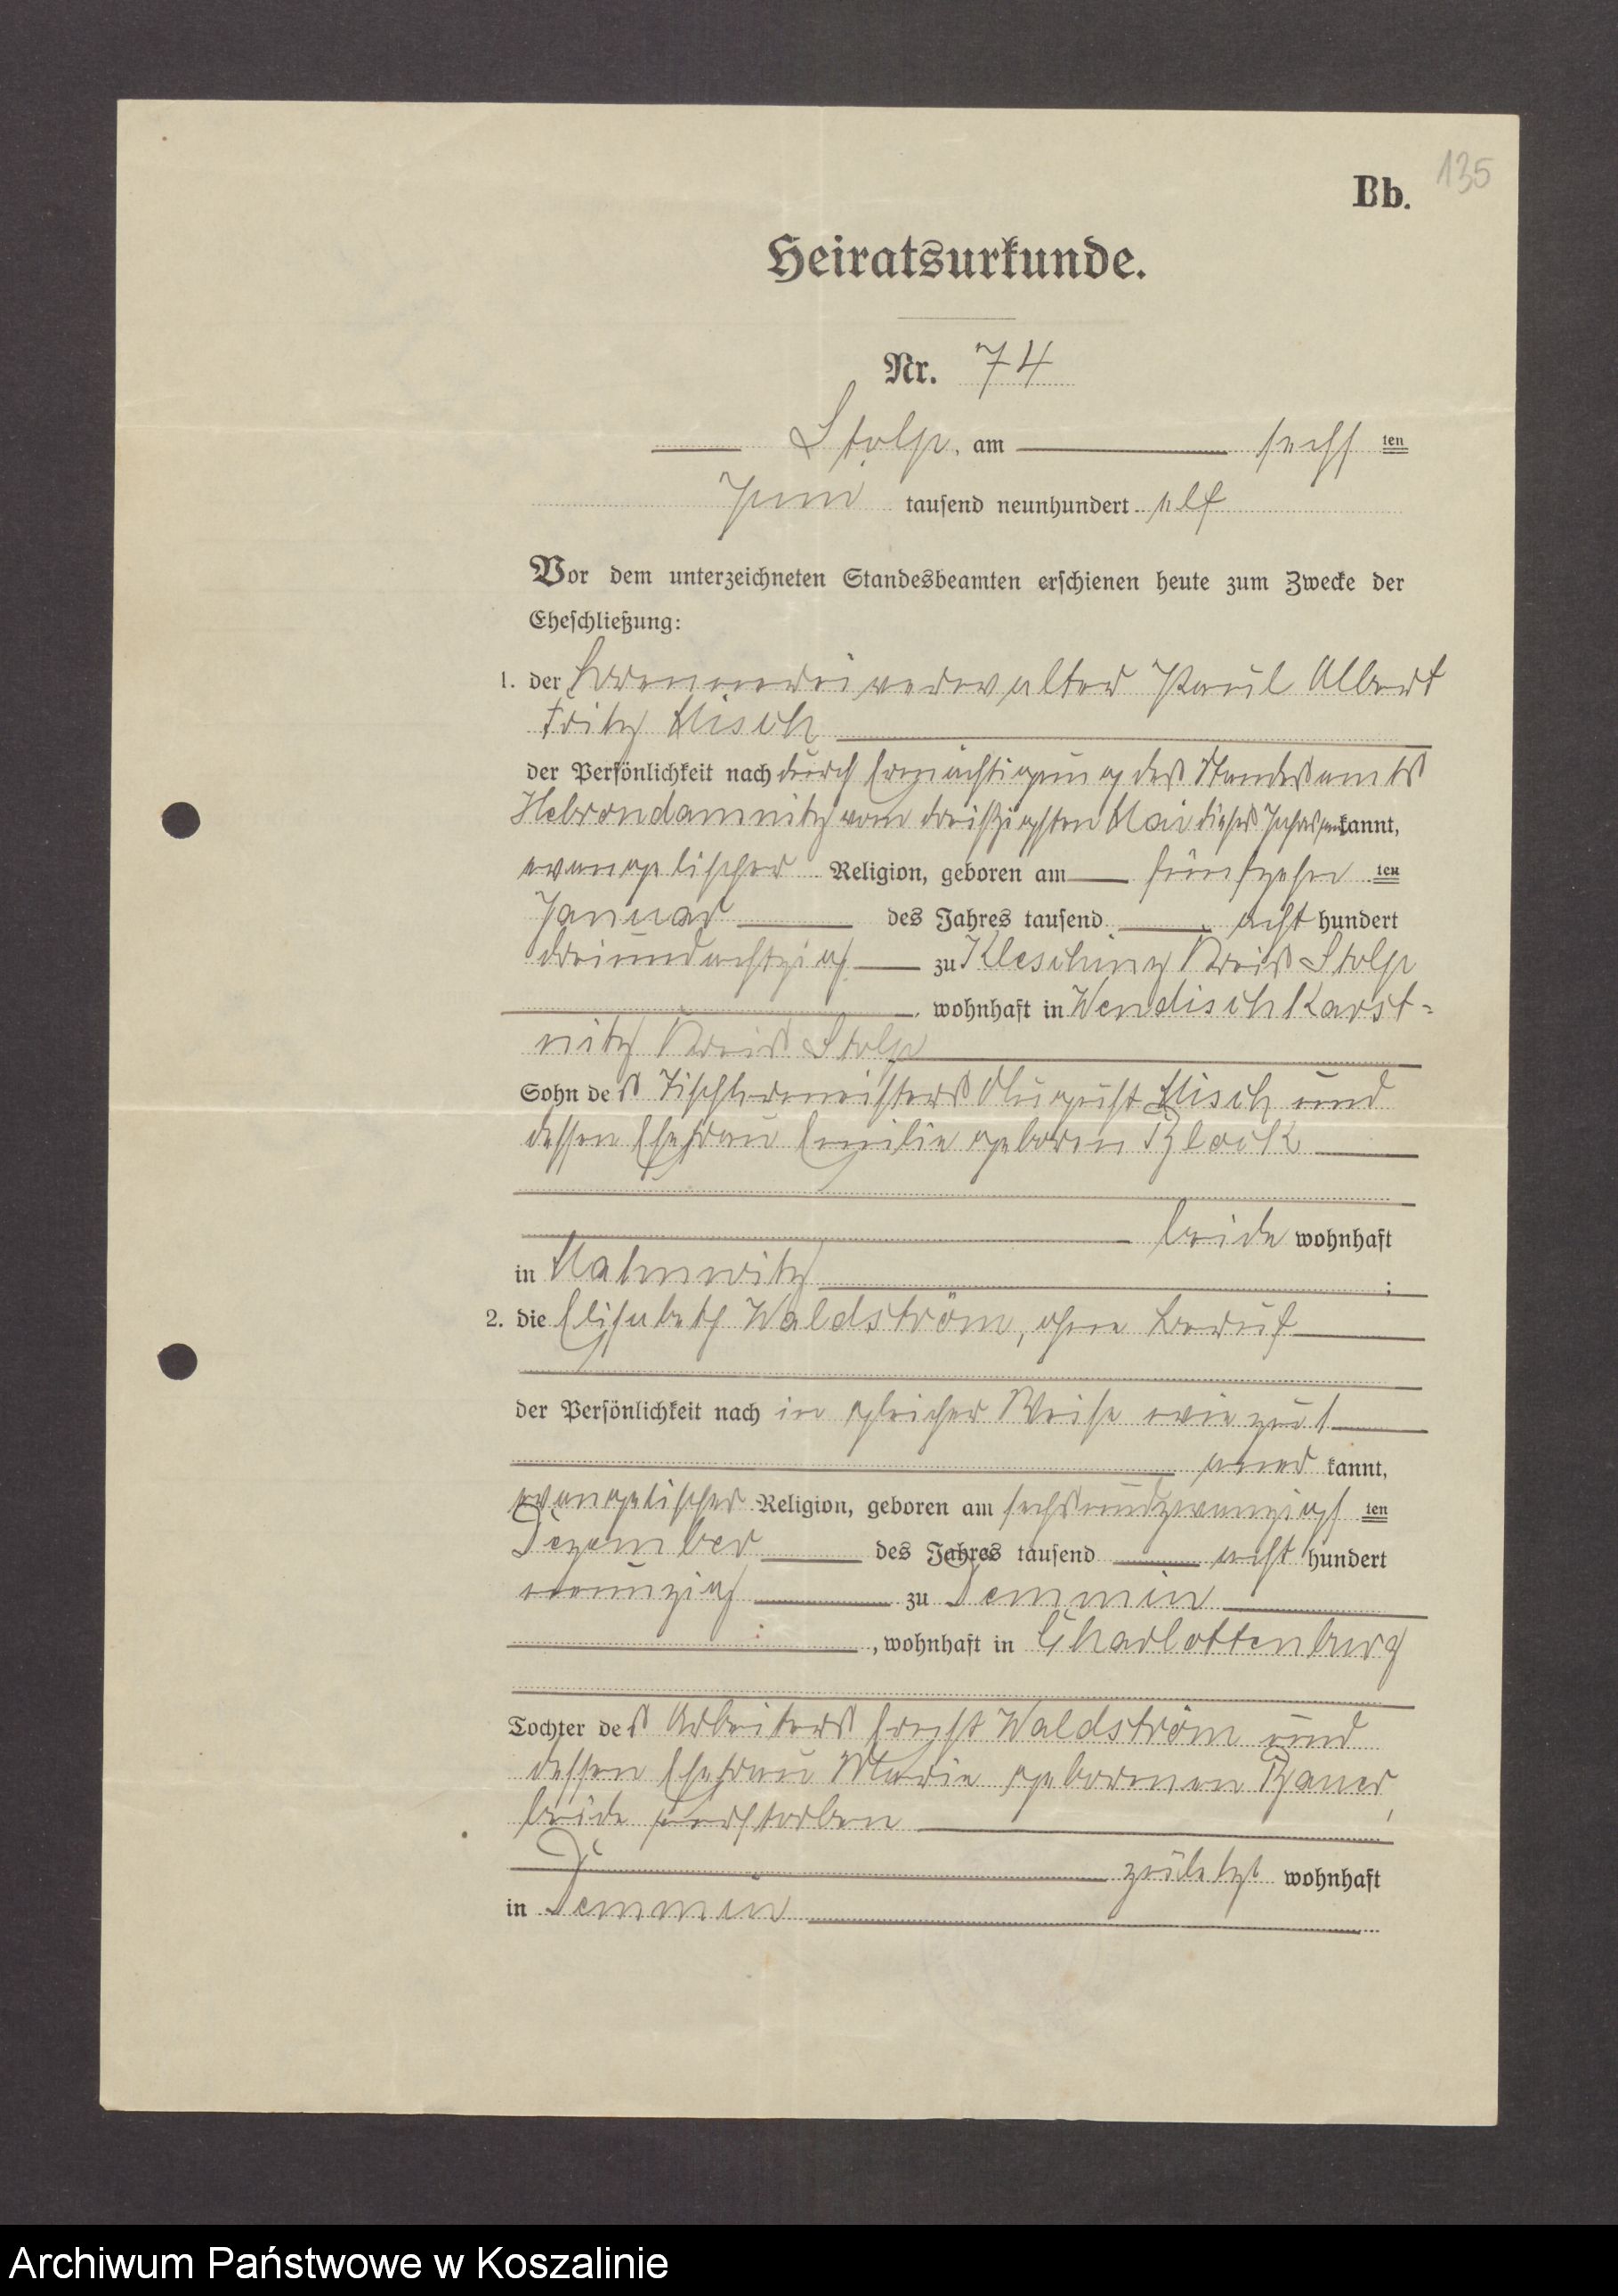 135
Bb.
Heiratsurkunde.
Nr. 74
Stolp, am sechs ten
Juni tausend neunhundert elf
Vor dem unterzeichneten Standesbeamten erschienen heute zum Zwecke der
Eheschließung:
1. der Brennereiverwalter Paul Albert
Fritz Misch
der Persönlichkeit nach durch Ermächtigung des Standesamts
Hebrondamnitz vom dreißigsten Mai dieses Jahres kannt,
evangelischer Religion, geboren am fünfzehn ten
Januar des Jahres tausend acht hundert
dreiundachtzig zu Kleschinz Kreis Stolp
, wohnhaft in Wendisch Karst-
nitz Kreis Stolp
Sohn des Tischlermeisters August Misch und
dessen Ehefrau Emilie geboren Block
beide wohnhaft
in Mahnwitz ;
2. die Elisabeth Waldström, ohne Beruf
der Persönlichkeit nach in gleicher Weise wie zu 1
aner kannt,
evangelischer Religion, geboren am sechsundzwanzigs ten
Dezember des Jahres tausend acht hundert
neunzig zu Demmin
, wohnhaft in Charlottenburg
Tochter des Arbeiters Ernst Waldström und
dessen Ehefrau Marie geborenen Bauer,
beide verstorben
zuletzt wohnhaft
in Demmin
Archiwum Państwowe w Koszalinie